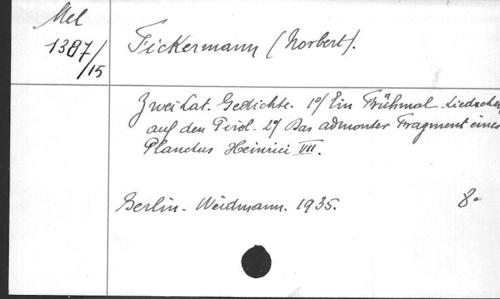 Mel
1387/15
Fickermann (Norbert).
Zwei Lat. Gedichte. 1°/ Ein Frühmal-Liedchen
auf den Pirol. 2°/ Das admonter Fragment eines
Planctus Heinrici VII.
Berlin. Weidmann. 1935. 8°